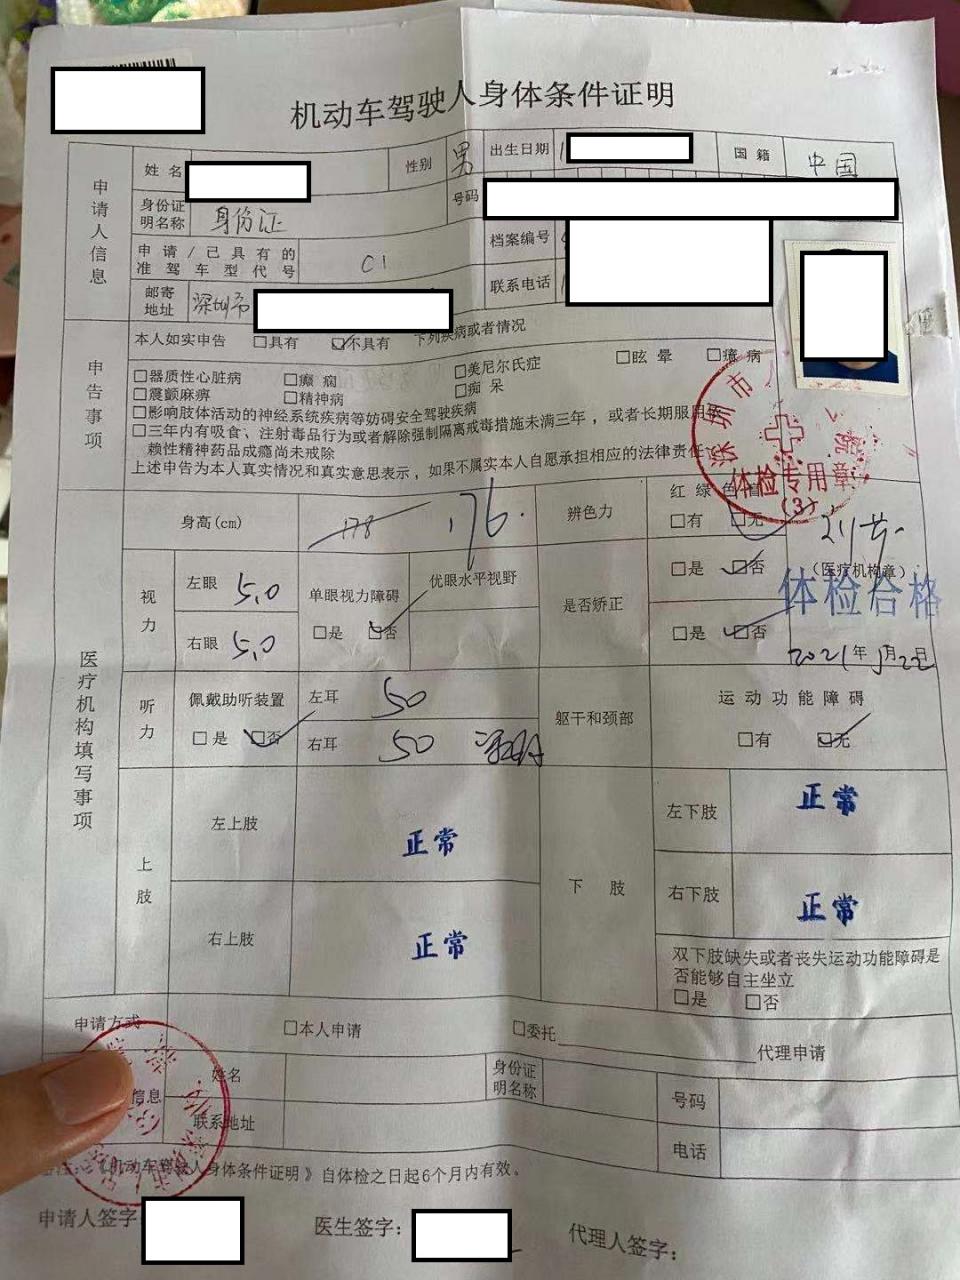 机动车驾驶人身体条件证明
申请人信息
姓名
性别 男
出生日期
国籍 中国
身份证明名称 身份证
号码
申请/已具有的准驾车型代号 C1
档案编号
邮寄地址 深圳市
联系电话
申告事项
本人如实申告 □具有 ☑不具有 下列疾病或者情况
□器质性心脏病 □癫痫 □美尼尔氏症 □眩晕 □癔病
□震颤麻痹 □精神病 □痴呆
□影响肢体活动的神经系统疾病等妨碍安全驾驶疾病
□三年内有吸食、注射毒品行为或者解除强制隔离戒毒措施未满三年，或者长期服用
赖性精神药品成瘾尚未戒除
上述申告为本人真实情况和真实意思表示，如果不属实本人自愿承担相应的法律责任
深圳市
体检专用章
(3)
医疗机构填写事项
身高(cm) 178 176.
辨色力
红绿色盲
□有 ☑无
视力
左眼 5.0
右眼 5.0
单眼视力障碍
□是 ☑否
优眼水平视野
是否矫正
□是 ☑否
□是 ☑否
(医疗机构章)
体检合格
2021年1月22日
听力
佩戴助听装置
□是 ☑否
左耳 50
右耳 50
躯干和颈部
运动功能障碍
□有 ☑无
上肢
左上肢 正常
右上肢 正常
下肢
左下肢 正常
右下肢 正常
双下肢缺失或者丧失运动功能障碍是
否能够自主坐立
□是 □否
申请方式
□本人申请
□委托 代理申请
信息
姓名
身份证明名称
号码
联系地址
电话
《机动车驾驶人身体条件证明》自体检之日起6个月内有效。
申请人签字:
医生签字:
代理人签字: